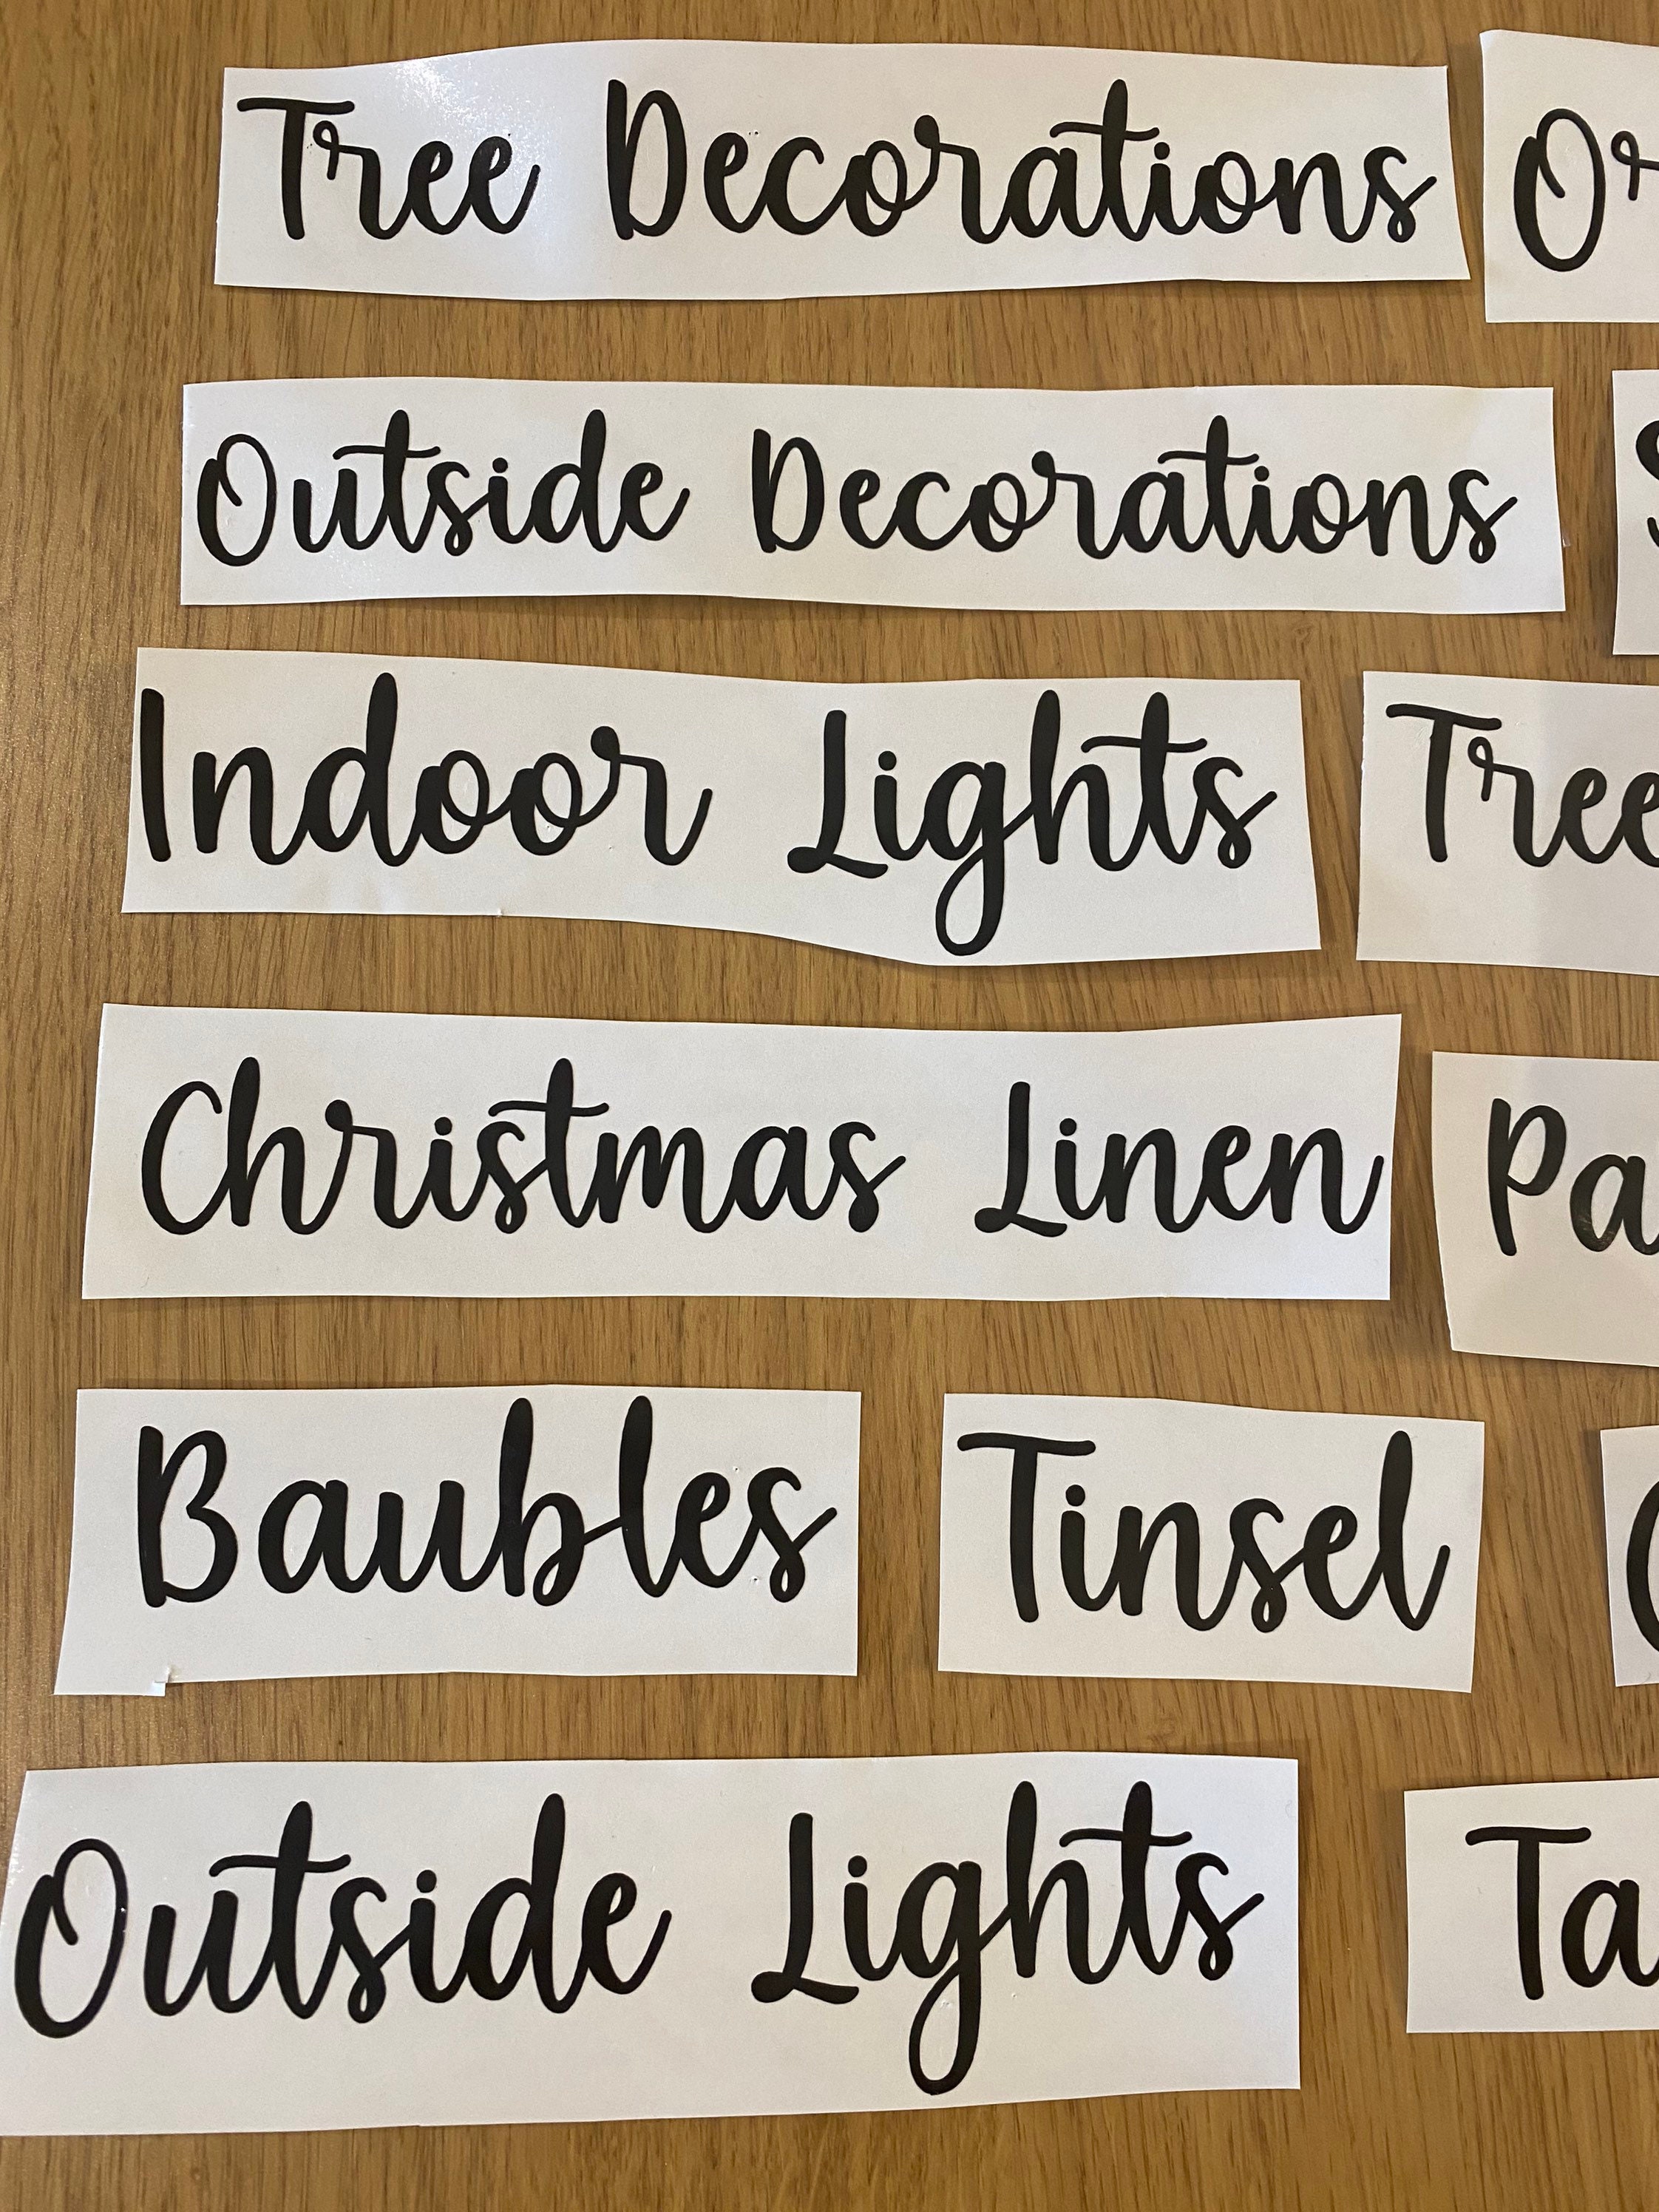 Tree Decorations
Outside Decorations
Indoor Lights Tree
Christmas Linen
Baubles Tinsel
Outside Lights